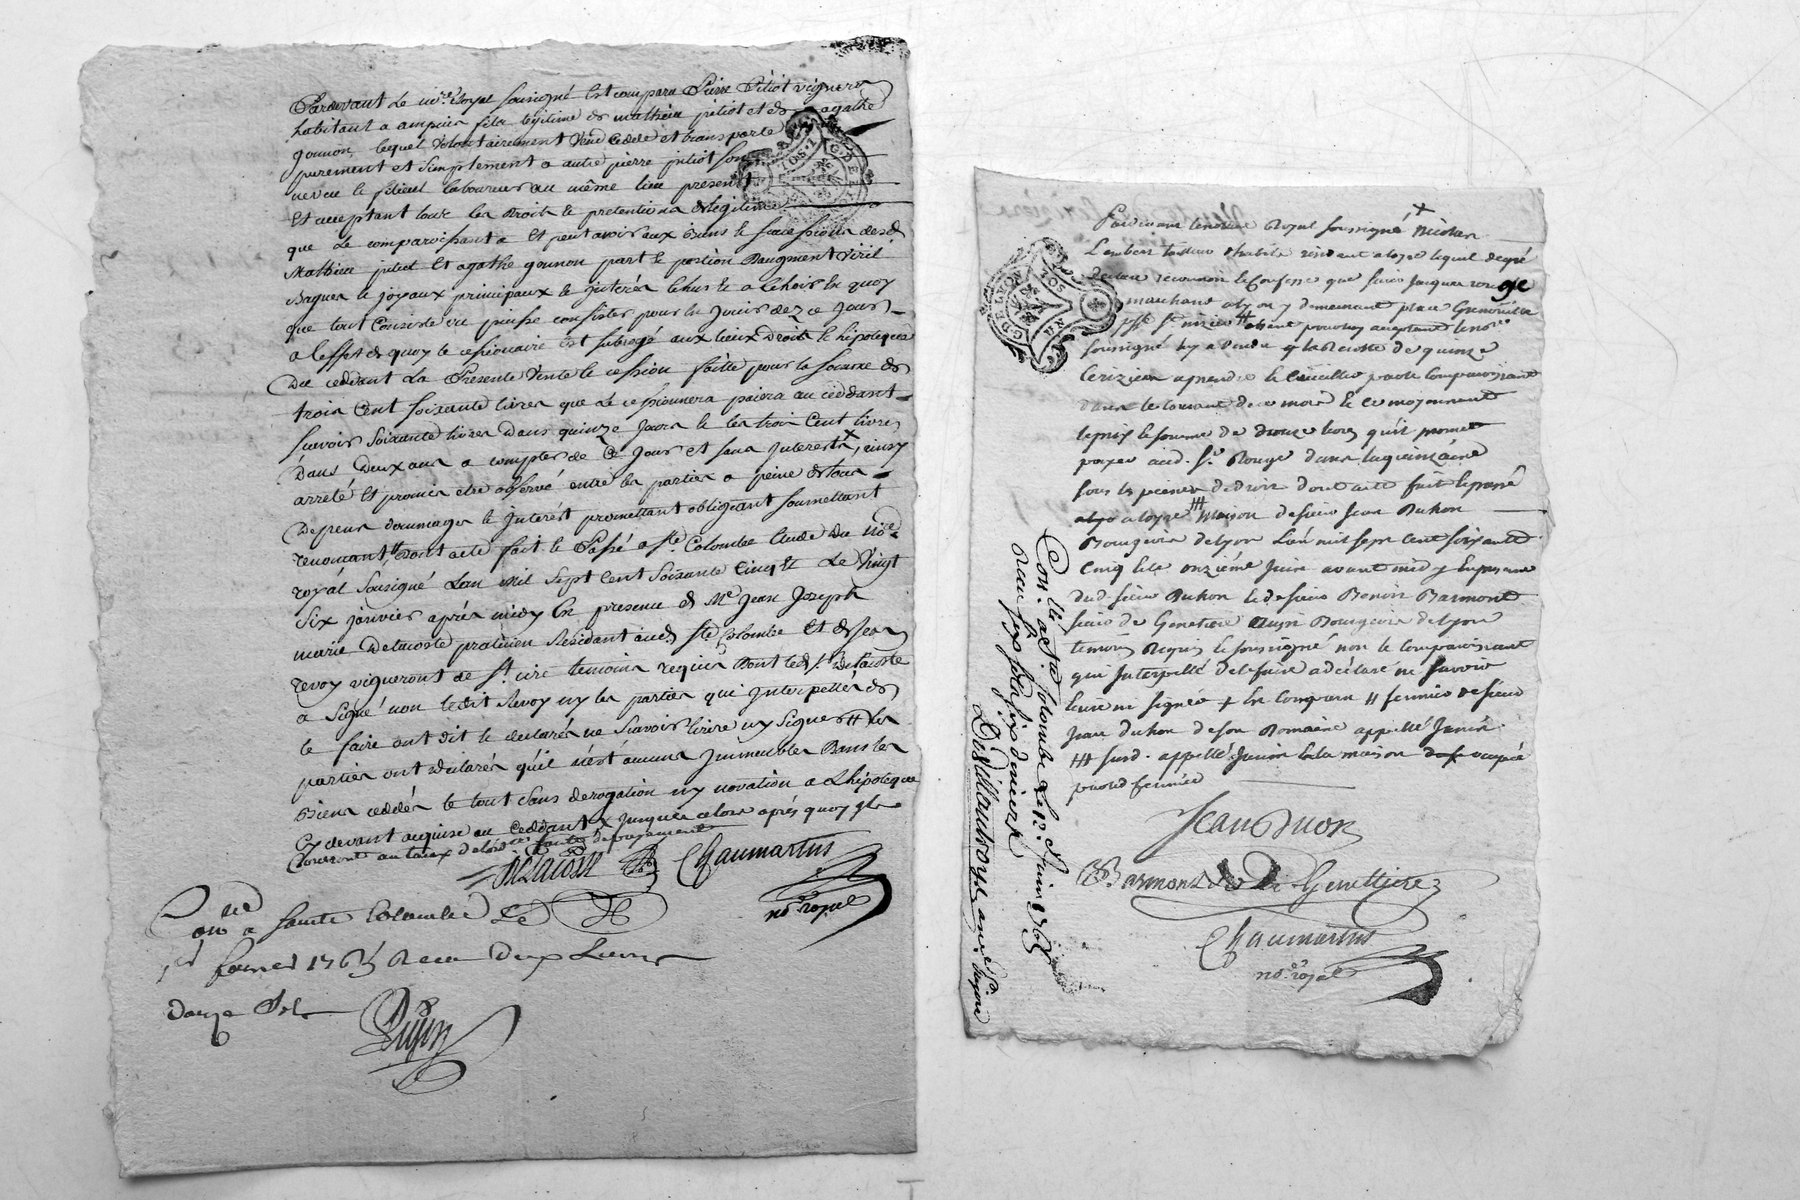 Pardevant le no.re Royal sousigné est comparu Pierre Piliot vigneron
habitant a ampuis fils legitime de mathieu piliot et de agathe
gounon, lequel volontairement vend cedde et transporte
purement et simplement a autre pierre piliot son
neveu le filieul laboureur au même lieu present
Et acceptant tous les droits & pretentions de legitime
que le comparoissant a et peut avoir aux biens & successions desd.
Mathieu piliot Et agathe gounon part & portion D'augment viril
Bagues & joyaux principaux & jnterés echus & a echoir en quoy
que tout consiste ou puisse consister pour en jouir dez ce jour
a leffet de quoy le cessionaire est subrogé aux lieux Droits & hipoteques
Du ceddant La Presente Vente & cession faitte pour la somme de
trois Cent soixante livres que Le cessionnera paiera au ceddant
sçavoir soixante livres Dans quinze jours & les trois Cent livres
Dans Deux ans a compter de Ce jour et sans Interests x, ainsy
arreté Et promis etre observé entre les parties a peine de tous
Depens dommages & jnterést promettant obligeant soumettant
renonçant, Dont acte fait & Passé a ste. Colombe Etude du no.re
royal Sousigné Lan Mil Sept Cent Soixante Cinq & Le Vingt
Six janvier aprés midy En presence de Me. Jean Joseph
marie Delacoste praticien Residant aud. Ste. Colombe Et de Jean
revoy vigneront de St. cire temoins requis Dont led. Sr. Delacoste
a Signé non ledit Revoy ny les parties qui Interpellés de
le faire ont dit & declarés ne Scavoir Ecrire ny Signer # Les
parties ont declarés qu'il n'est aucuns Jmmeubles Dans les
Biens ceddés le tout sans derogation ny novation a L'hipoteque
Cy devant acquise au Ceddant x jusques alors aprés quoy ils
Courront au taux de lordce. faute de payement
Delacoste Chaumartin
no.re royal
Con.lé a Sainte Colombe Le
1er fevrier 1765 Recu Deux Livres
Douze Sols
Pardevant lenotaire Royal soussigné x Nicolas
Lambert tailleur d'habits résidant a loyre lequel degré
declare reconnoit & Confesse que sieur Jacques rouge
marchand a lyon y demeurant place Grenouille
psse. St. nizier # absent pour luy acceptant le no.re
soussigné luy a vendu la Recolte de quinze
Ceriziers aprendre & Cueillir par le Comparoissant
dans le courant de ce mois & ce moyennant
leprix & somme de douze livres qu'il promet
payer aud. Sr. Rouge dans la quinzaine
sous les peines de droit dont acte fait & passé
a loyre ## Maison de sieur Jean Duhon
Bourgeois de lyon Lan mil sept Cent soixante
Cinq & le onziéme Juin avant midy En presence
dud. sieur Duhon & de sieur Benoit Barmont
sieur de Genetiere aussy Bourgeois de lyon
temoins Requis & soussigné non le Comparoissant
qui Interpellé de le faire a déclaré ne sçavoir
Ecrire ni signer # fermier de sieur
Jean duhon de son Domaine appellé Janin
### susd. appellé Janin & la maison occupée
par led. fermier
Jean Duon
Barmont de La Genettiere
Chaumartin
no.re royal
Con.lé a Ste Colombe Le 12. Juin 1765
Recu six sols six deniers